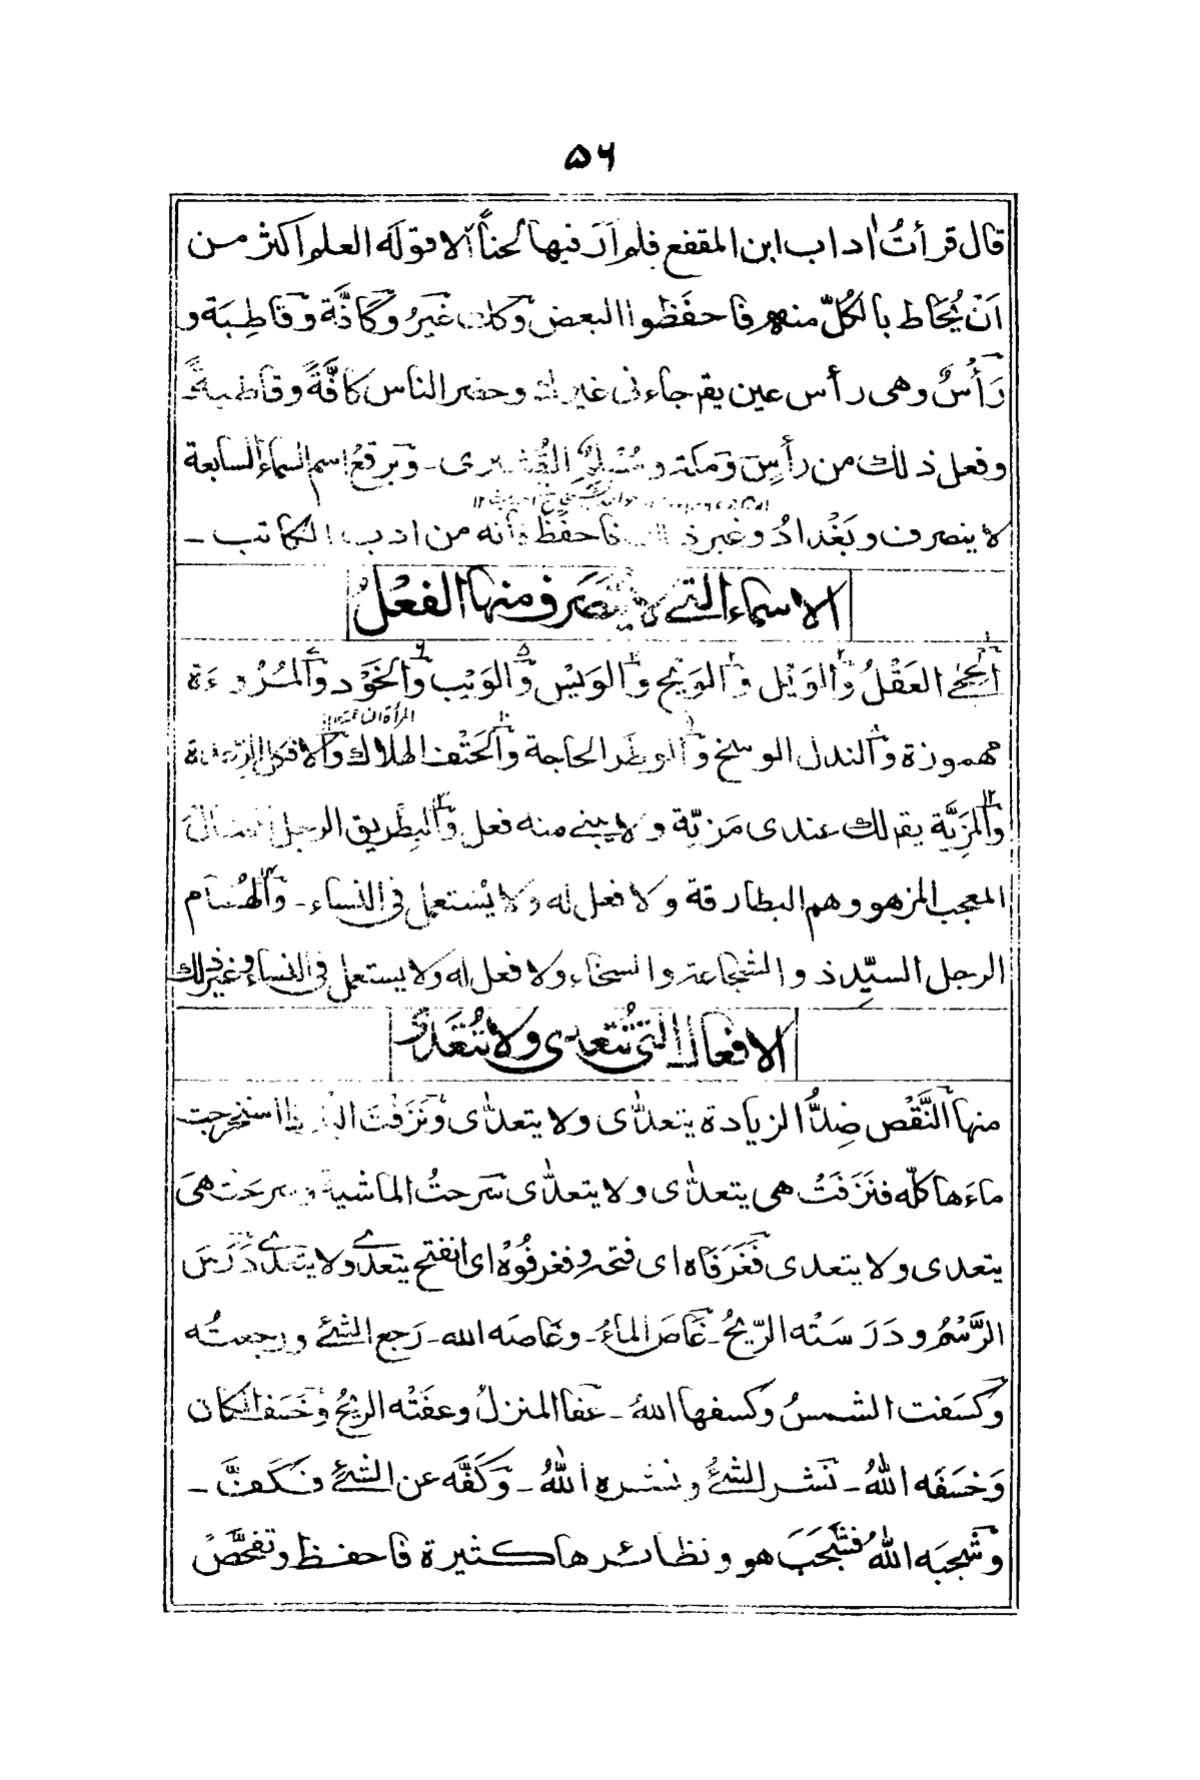 ۵۶
قال قرأتُ اداب ابن المقفع فلم اَرَ فيها لحناً الا قوله العلم اكثر من
اَنْ يُحَاط بالكُلّ منهم فاحفَظوا البعض وكذا غَيرُ وكَافَّة وقَاطِبَة و
رَأسٌ وهى رأس عين يقم جاءنى غيرك وحضر الناس كافَّةً وقاطبةً
وفعل ذلك من رأسٍ ومكة و القُشيرى - وبرقعُ اسم السماء السابعة
لا ينصرف وبَغْدادُ وغير فاحفَظ فانه من ادب الكاتب -
الاسماء التى لا يتصَرف منها الفعْلُ
اَلحجٰى العَقْلُ والوَيْل والوَيْح والوَيْس والوَيْب والخَوْد والمُرُوءَة
مهموزة والندل الوسخ والوطر الحاجة والحَتْف الهلاك والافكل الرعدة
والمَزِيَّة يقم لك عندى مَزيّة ولا يبنى منه فعل والبِطْريق الرجل
المعجب المزهو وهم البطارقة ولا فعل له ولا يُستعمل فى النساء - والهُمام
الرجل السيّد ذو الشجاعة والسخاء ولا فعل له ولا يستعمل فى النساء وغير ذلك
الافعال التى تتعدى ولا تتَعَدى
منها النَّقْص ضِدُّ الزيادة يتعدّى ولا يتعدّى ونَزَفْتَ استخرجت
ماءَها كلّه فنَزَفَتُ هى يتعدّى ولا يتعدّى سَرَحتُ الماشية وسرحَت هىَ
يتعدى ولا يتعدى فَغَرَ فَاه اى فتحه وفغر فُوهُ اى انفتح يتعدّى ولا يتعدّى دَرَسَ
الرَّسْمُ ودَرَسَتْه الرّيحُ - غَاصَ الماءُ - وغَاصَه الله - رَجع الشئُ ورجعتُه
وكسَفت الشمسُ وكسفها اللهُ - عَفا المنزلُ وعفَتْه الريحُ وخَسَف المكان
وَخسَفَه اللهُ - نَشر الشئُ ونشره اللهُ - وكَفَّه عن الشئِ فكَفَّ -
وشَجبَه اللهُ فشَجَبَ هو ونظائرها كثيرة فاحفظ وتفحَّصْ